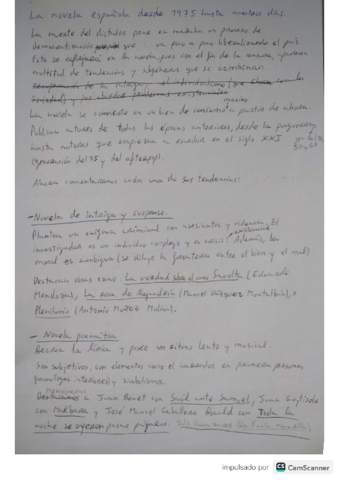 La novela española desde 1975 hasta nuestros días.
La muerte del dictador pone en marcha un proceso de
democratización que va poco a poco liberalizando el país.
Esto se reflejará en la novela, pues con el fin de la censura, aparecen
multitud de tendencias y subgéneros que se combinan.
La novela se convierte en un bien de consumo a partir de ahora.
Publican autores de todas las épocas anteriores, desde la posguerra
hasta autores que empiezan a escribir en el siglo XXI
(generación del 75 y del afterpop).
Ahora comentaremos cada una de sus tendencias:
-Novela de intriga y suspense.
Plantea un enigma criminal con asesinatos y violencia. El
investigador es un individuo complejo y en crisis existencial. Además, la
moral es ambigua (se diluye la frontera entre el bien y el mal).
Destacan obras como: La verdad sobre el caso Savolta (Eduardo
Mendoza), La rosa de Alejandría (Manuel Vázquez Montalbán), o
Plenilunio (Antonio Muñoz Molina).
- Novela poemática
Recrea la lírica y posee un ritmo lento y musical.
Son subjetivas, con elementos como el narrador en primera persona
(monólogos interiores) y simbolismos.
a Juan Benet con Saúl ante Samuel, Juan Goytisolo
con Makbara y José Manuel Caballero Bonald con Toda la
noche se oyeron pasar pájaros.
impulsado por CS CamScanner